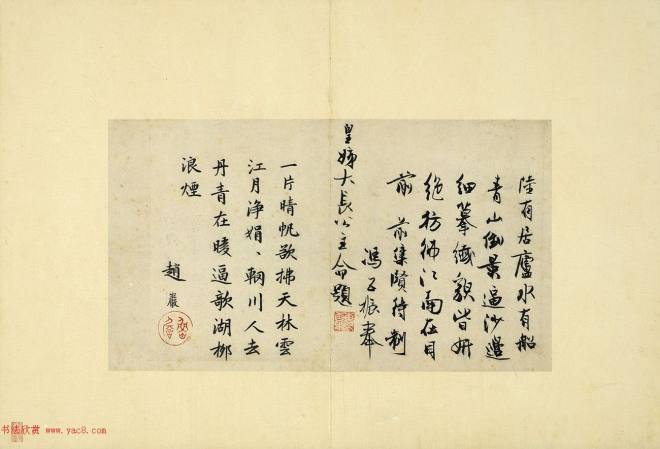 陸有居廬水有船
青山倒景逼沙邊
細摹纖皆妍
絕彷彿江南在目
前 前集賢待制
馮子振奉
皇姊大長公主命題
一片晴帆欲拂天林雲
江月淨娟〻輞川人去
丹青在暖逼歌湖柳
浪煙
趙巖
书法欣赏 www.yac8.com